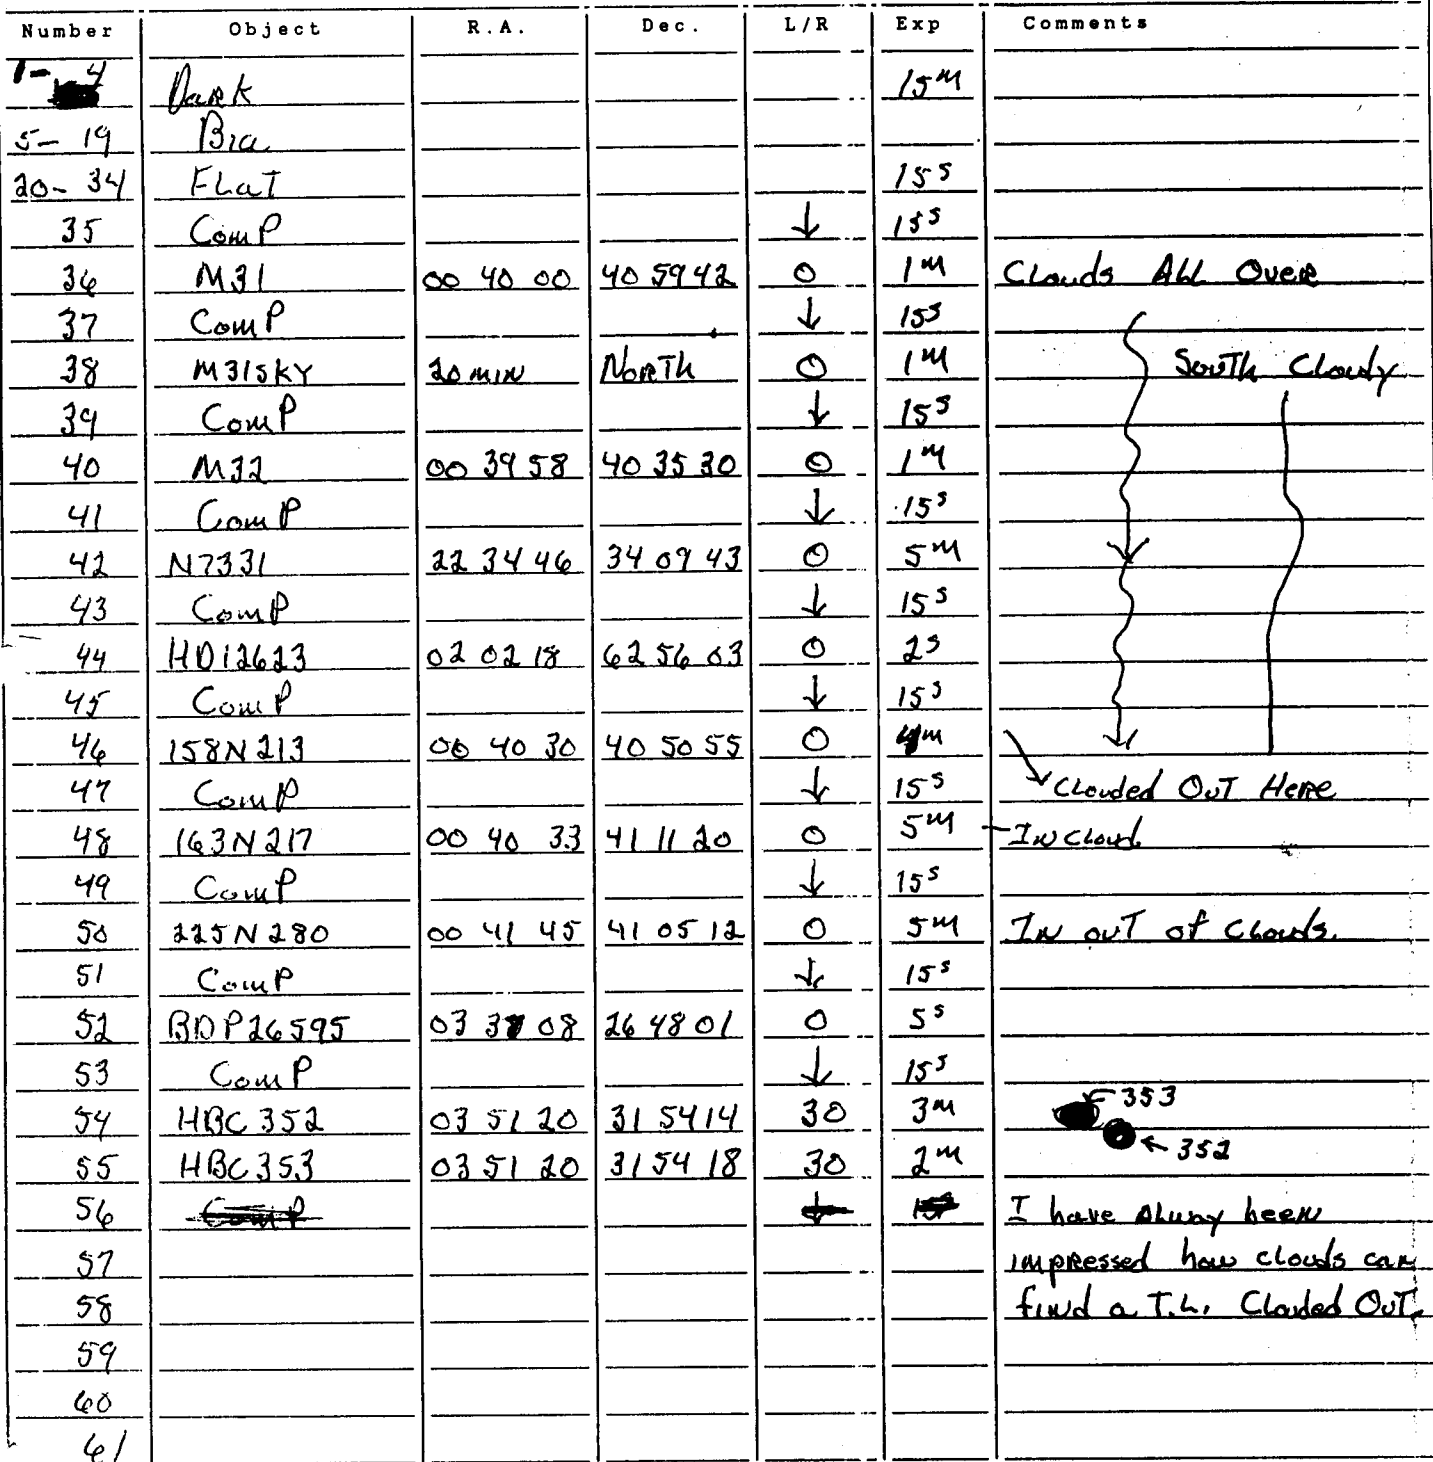 Number Object R.A. Dec. L/R Exp Comments
1- 4 Dark 15 M
5- 19 Bia
20- 34 FLaT 15 S
35 Comp ↓ 15 S
36 M31 00 40 00 40 59 42 0 1 M Clouds ALL Over
37 Comp ↓ 15 S
38 M31SKY 20 MIN NORTH 0 1 M South Cloudy
39 Comp ↓ 15 S
40 M32 00 39 58 40 35 30 0 1 M
41 Comp ↓ 15 S
42 N7331 22 34 46 34 09 43 0 5 M
43 Comp ↓ 15 S
44 HD12623 02 02 18 62 56 03 0 2 S
45 Comp ↓ 15 S
46 158N213 00 40 30 40 50 55 0 M
47 Comp ↓ 15 S Clouded OuT Here
48 163N217 00 40 33 41 11 20 0 5 M - In Cloud
49 Comp ↓ 15 S
50 225N280 00 41 45 41 05 12 0 5 M In ouT of Clouds.
51 Comp ↓ 15 S
52 BDP26595 03 08 26 48 01 0 5 S
53 Comp ↓ 15 S
← 353
54 HBC 352 03 51 20 31 54 14 30 3 M
← 352
55 HBC 353 03 51 20 31 54 18 30 2 M
56 Comp ↓ I have Alway been
57 impressed how clouds can
58 find a T.L. Clouded OuT.
59
60
61